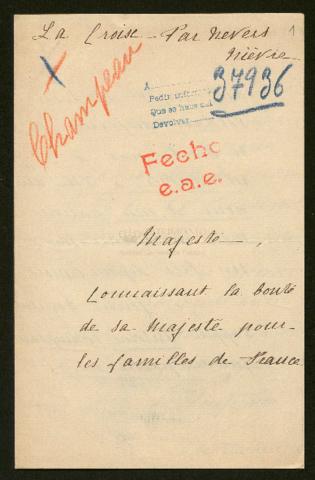 La Croise - Par Nevers
Nièvre
1
X
Champeau
A
Pedir
Que se haga
Devolver
37936
Fecho
e.a.e.
Majesté,
Connaissant la bonté
de sa Majesté pour
les familles de France